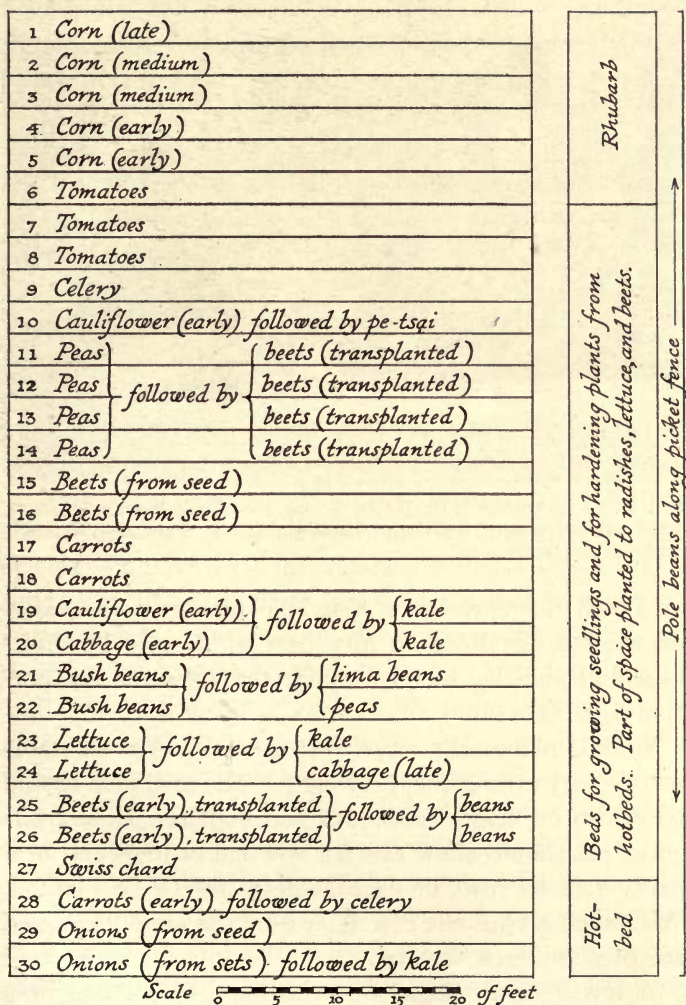 1 Corn (late)
2 Corn (medium)
3 Corn (medium)
4 Corn (early)
5 Corn (early)
6 Tomatoes
7 Tomatoes
8 Tomatoes
9 Celery
10 Cauliflower (early) followed by pe-tsai
11 Peas } followed by { beets (transplanted)
12 Peas beets (transplanted)
13 Peas beets (transplanted)
14 Peas beets (transplanted)
15 Beets (from seed)
16 Beets (from seed)
17 Carrots
18 Carrots
19 Cauliflower (early) } followed by { kale
20 Cabbage (early) kale
21 Bush beans } followed by { lima beans
22 Bush beans peas
23 Lettuce } followed by { kale
24 Lettuce cabbage (late)
25 Beets (early), transplanted } followed by { beans
26 Beets (early), transplanted beans
27 Swiss chard
28 Carrots (early) followed by celery
29 Onions (from seed)
30 Onions (from sets) followed by kale
Scale 0 5 10 15 20 of feet
Rhubarb
Beds for growing seedlings and for hardening plants from
hotbeds. Part of space planted to radishes, lettuce, and beets.
Hot-
bed
Pole beans along picket fence